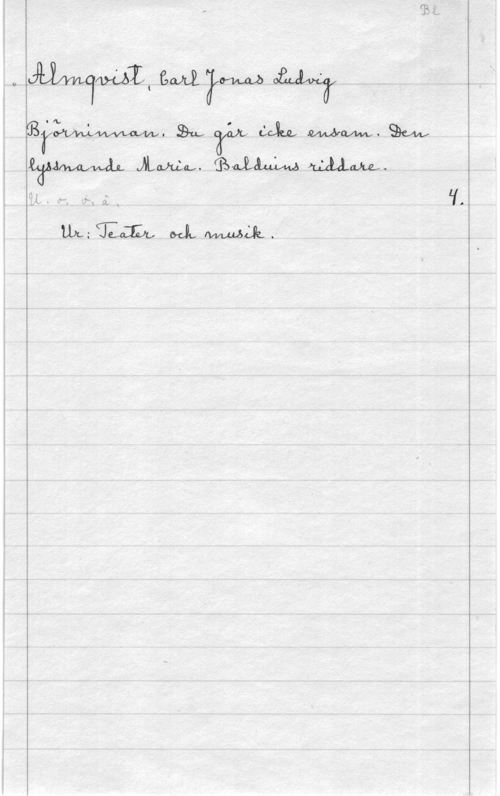 Bl
Almqvist, Carl Jonas Ludvig
Björninnan. Du går icke ensam. Den
lyssnande Maria. Balduins riddare.
U. o. o. å. 4.
Ur: Teater och musik.